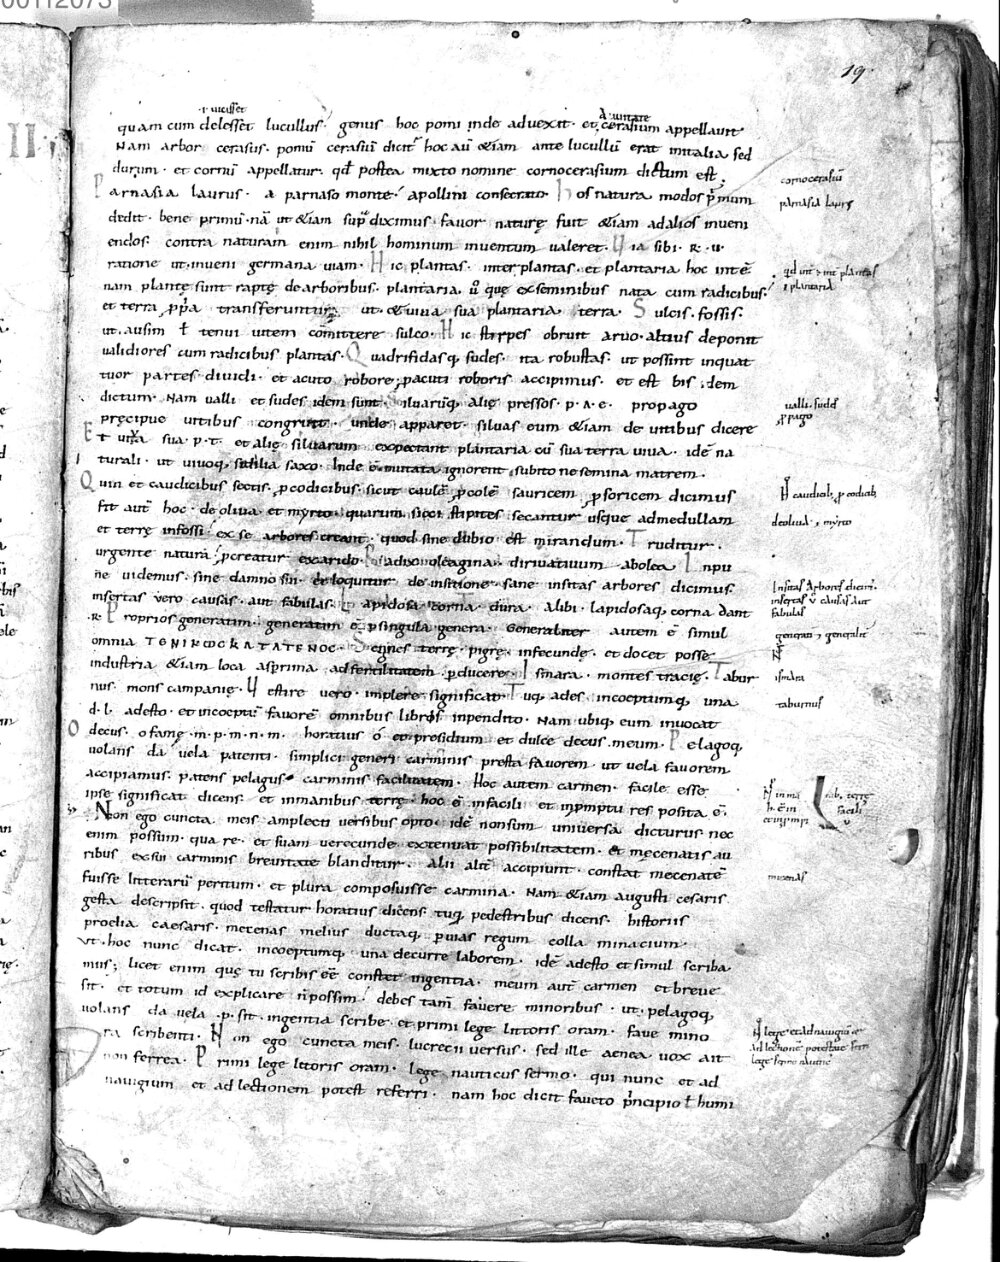 00112073
19.
.i. vicisset
quam cum delesset lucullus. genus hoc pomi inde advexit. et cerasium appellavit
Nam arbor cerasus. pomū cerasiū dicit᷑ hoc aū &iam ante lucullū erat initalia sed
durum. et cornū appellatur. qđ postea mixto nomine cornocerasium dictum est.
Parnasia laurus. a parnaso monte. apollini consecrato Hos natura modos p̄mum
dedit. bene primū. nā ut &iam sup̄ diximus. favor naturę fuit &iam adalios inveni
endos. contra naturam enim nihil hominum inventum valeret. Via sibi. R. v.
ratione ut. inveni germana viam. Hic plantas. inter plantas. et plantaria hoc intē
nam plantę sunt raptę dearboribus. plantaria. ū quę exseminibus nata cum radicibus.
et terra p̱pa transferuntur. ut. &viva sua plantaria terra. Sulcis. fossis.
ut. ausim ł tenui vitem cōmittere sulco. Hic stirpes obruit arvo. altius deponit
validiores cum radicibus plantas. Quadrifidasq; sudes. ita robustas. ut possint inquat
tuor partes dividi. et acuto robore. pacuti roboris accipimus. et est bis idem
dictum. Nam valli et sudes idem sunt. Silvarūq; alię pressos. p. A. e. propago
pręcipue vitibus congruit. unde apparet. silvas eum &iam de vitibus dicere
Et viva sua. p. t. et alię silvarum expectant plantaria cū sua terra viva. idē na
turali. ut vivoq; sedilia saxo. Inde ē mutata ignorent subito ne semina matrem.
Quin et caudicibus sectis. p̱ codicibus. sicut caulē p̱ colē sauricem p̱ soricem dicimus
fit aut̄ hoc. de oliva et myrto. quarum sicci stipites secantur usque admedullam
et terrę infossi. ex se arbores creant. quod sine dubio est mirandum. Truditur.
urgente natura. p̱creatur exarido. Radix oleagina. dirivativum abolea Inpu
ne videmus. sine damno sui. et loquitur de insitione. sane insitas arbores dicimus.
insertas vero causas. aut fabulas. Lapidosa corna. dura. alibi. lapidosaq; corna dant
.R. Proprios generatim. generatim ē p̱ singula genera. Generaliter autem ē simul
omnia ΤΟΝΙΚΩϹΚΑΤΑΓΕΝΟϹ. Segnes terrę. pigrę. infecundę. et docet posse
industria &iam loca asp̱rima adfertilitatem p̱ducere. Ismara. montes tracię. Tabur
nus. mons campanię. Vestire vero. implere significat Tuq; ades. inceptumq; una
d. l. adesto. et incoeptū favorē omnibus libros inpendito. Nam ubiq; eum invocat
O decus. o famę. m. p. m. n. m. horatius ó et presidium et dulce decus meum. Pelagoq;
volans da vela patenti. simplici generi carminis presta favorem. ut vela favorem
accipiamus. patens pelagus. carminis facilitatem. Hoc autem carmen. facile esse
ipse significat dicens. et inmanibus terrę. hoc ē infacili et inpmptu res posita ē.
Non ego cuncta meis amplecti versibus opto. idē nonsum universa dicturus nec
enim possum. qua re. et suam verecunde extenuat possibilitatem. et mecenatis au
ribus exsui carminis brevitate blanditur. Alii alit̄ accipiunt. constat mecenatē
fuisse litterarū peritum. et plura composuisse carmina. Nam &iam augusti cesaris
gesta descripsit. quod testatur horatius dicens. tuq; pedestribus dicens historiis
proelia caesaris. mecenas melius ductaq; p̱vias regum colla minacium.
Ut. hoc nunc dicat. incoeptumq; una decurre laborem. idē adesto et simul scriba
mus; licet enim quę tu scribis eē constet ingentia. meum aut̄ carmen et breve
sit. et totum id explicare n̄ possim. debes tam̄ favere minoribus. ut. pelagoq;
volans da vela .p. sit. ingentia scribe. et primi lege littoris oram. fave mino
ra scribenti. Non ego cuncta meis. lucrecii versus. sed ille aenea vox ait
non ferrea. Primi lege litoris oram. lege. nauticus sermo. qui nunc et ad
navigium et ad lectionem potest referri. nam hoc dicit faveto p̄ncipio ł humi
cornocerasiū
parnasia laurus
qđ int̄ plantas
& plantaria
valli. sudes
p̱pago
caudicib; p̱ codicib;
deoliva & myrto
Insitas Arbores dicim̄.
insertas v̄ causas aut
fabulas
generati & generalit̄
ismara
taburnus
mecenas
lege et ad navigiū ē
ad lectionē potest
lege sermo nautic᷒